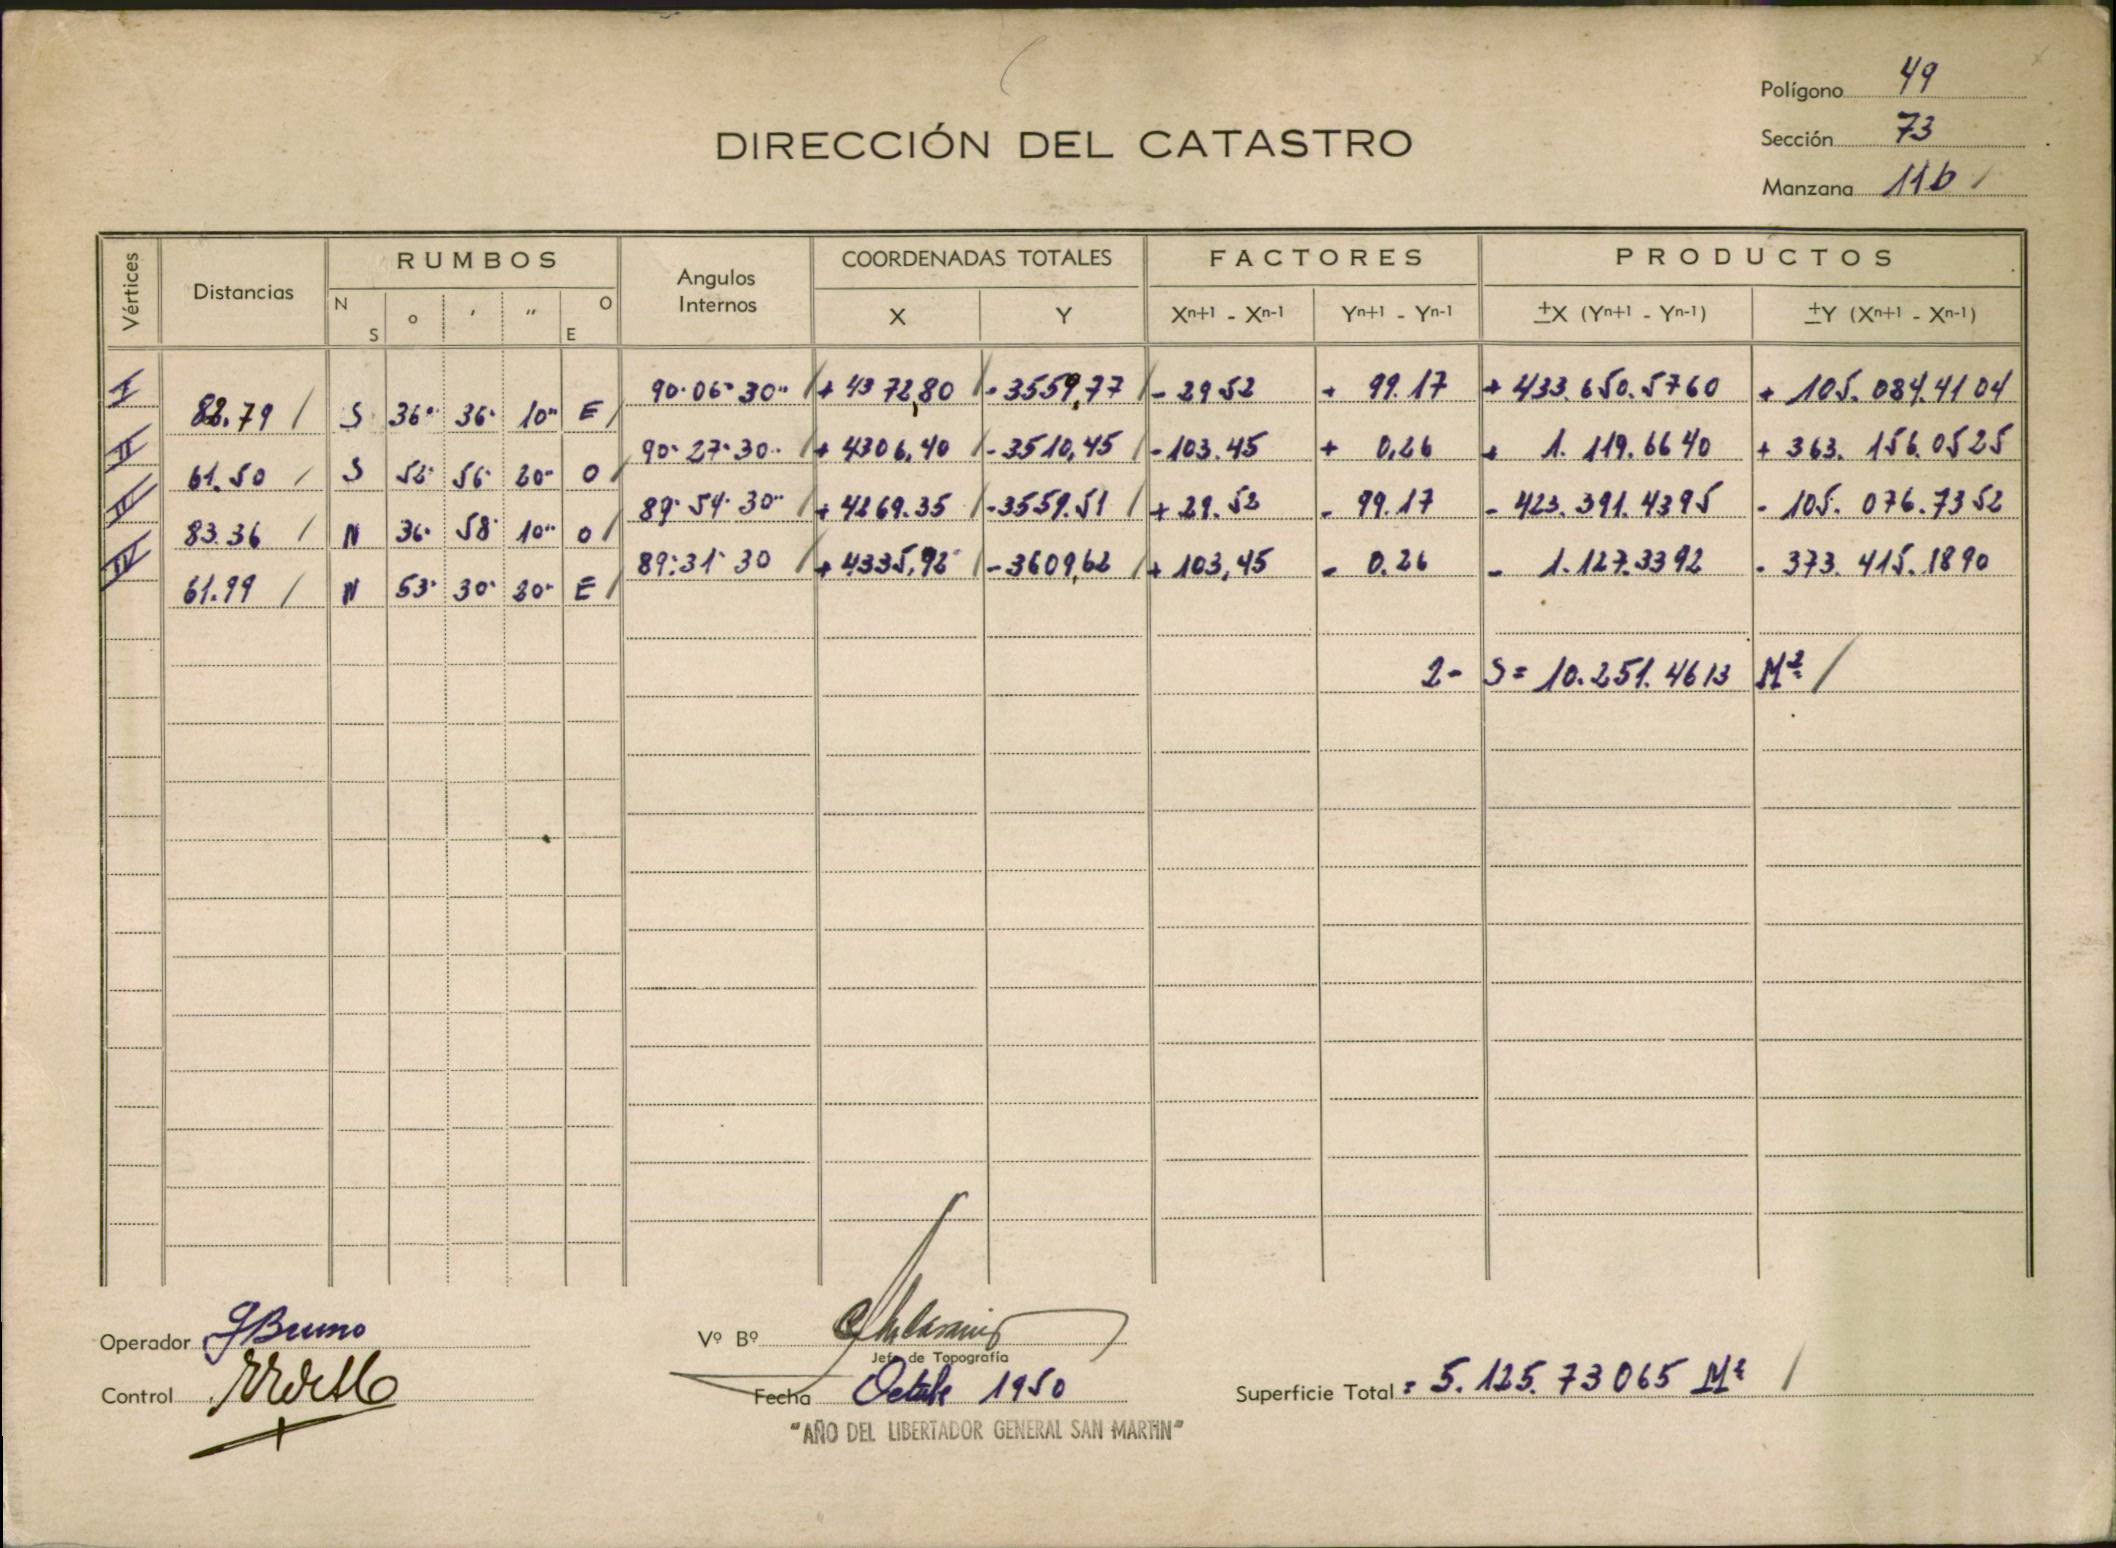 Polígono 49
DIRECCIÓN DEL CATASTRO
Sección 73
Manzana 11b /
Vértices Distancias RUMBOS Angulos Internos COORDENADAS TOTALES FACTORES PRODUCTOS
N S ° ' " O E X Y Xn+1 - Xn-1 Yn+1 - Yn-1 ±X (Yn+1 - Yn-1) ±Y (Xn+1 - Xn-1)
I 90° 06' 30" / + 4372,80 / - 3559,77 / - 29.52 + 99.17 + 433.650.5760 + 105.084.4104
82.79 / S 36° 36' 10" E /
II 90° 27' 30" / + 4306,40 / - 3510,45 / - 103.45 + 0,26 + 1.119.6640 + 363.156.0525
61.50 / S 52° 56' 20" O /
III 89° 54' 30" / + 4269.35 / - 3559.51 / + 29.52 - 99.17 - 423.391.4395 - 105.076.7352
83.36 / N 36° 58' 10" O /
IV 89° 31' 30 / + 4335,92 / - 3609,62 / + 103,45 - 0.26 - 1.127.3392 - 373.415.1890
61.99 / N 53° 30' 20" E /
2 - S = 10.251.4613 M² /
Operador J Bruno
Vº Bº
Jefe de Topografía
Control
Fecha Octubre 1950
Superficie Total = 5.125.73065 M² /
"AÑO DEL LIBERTADOR GENERAL SAN MARTIN"